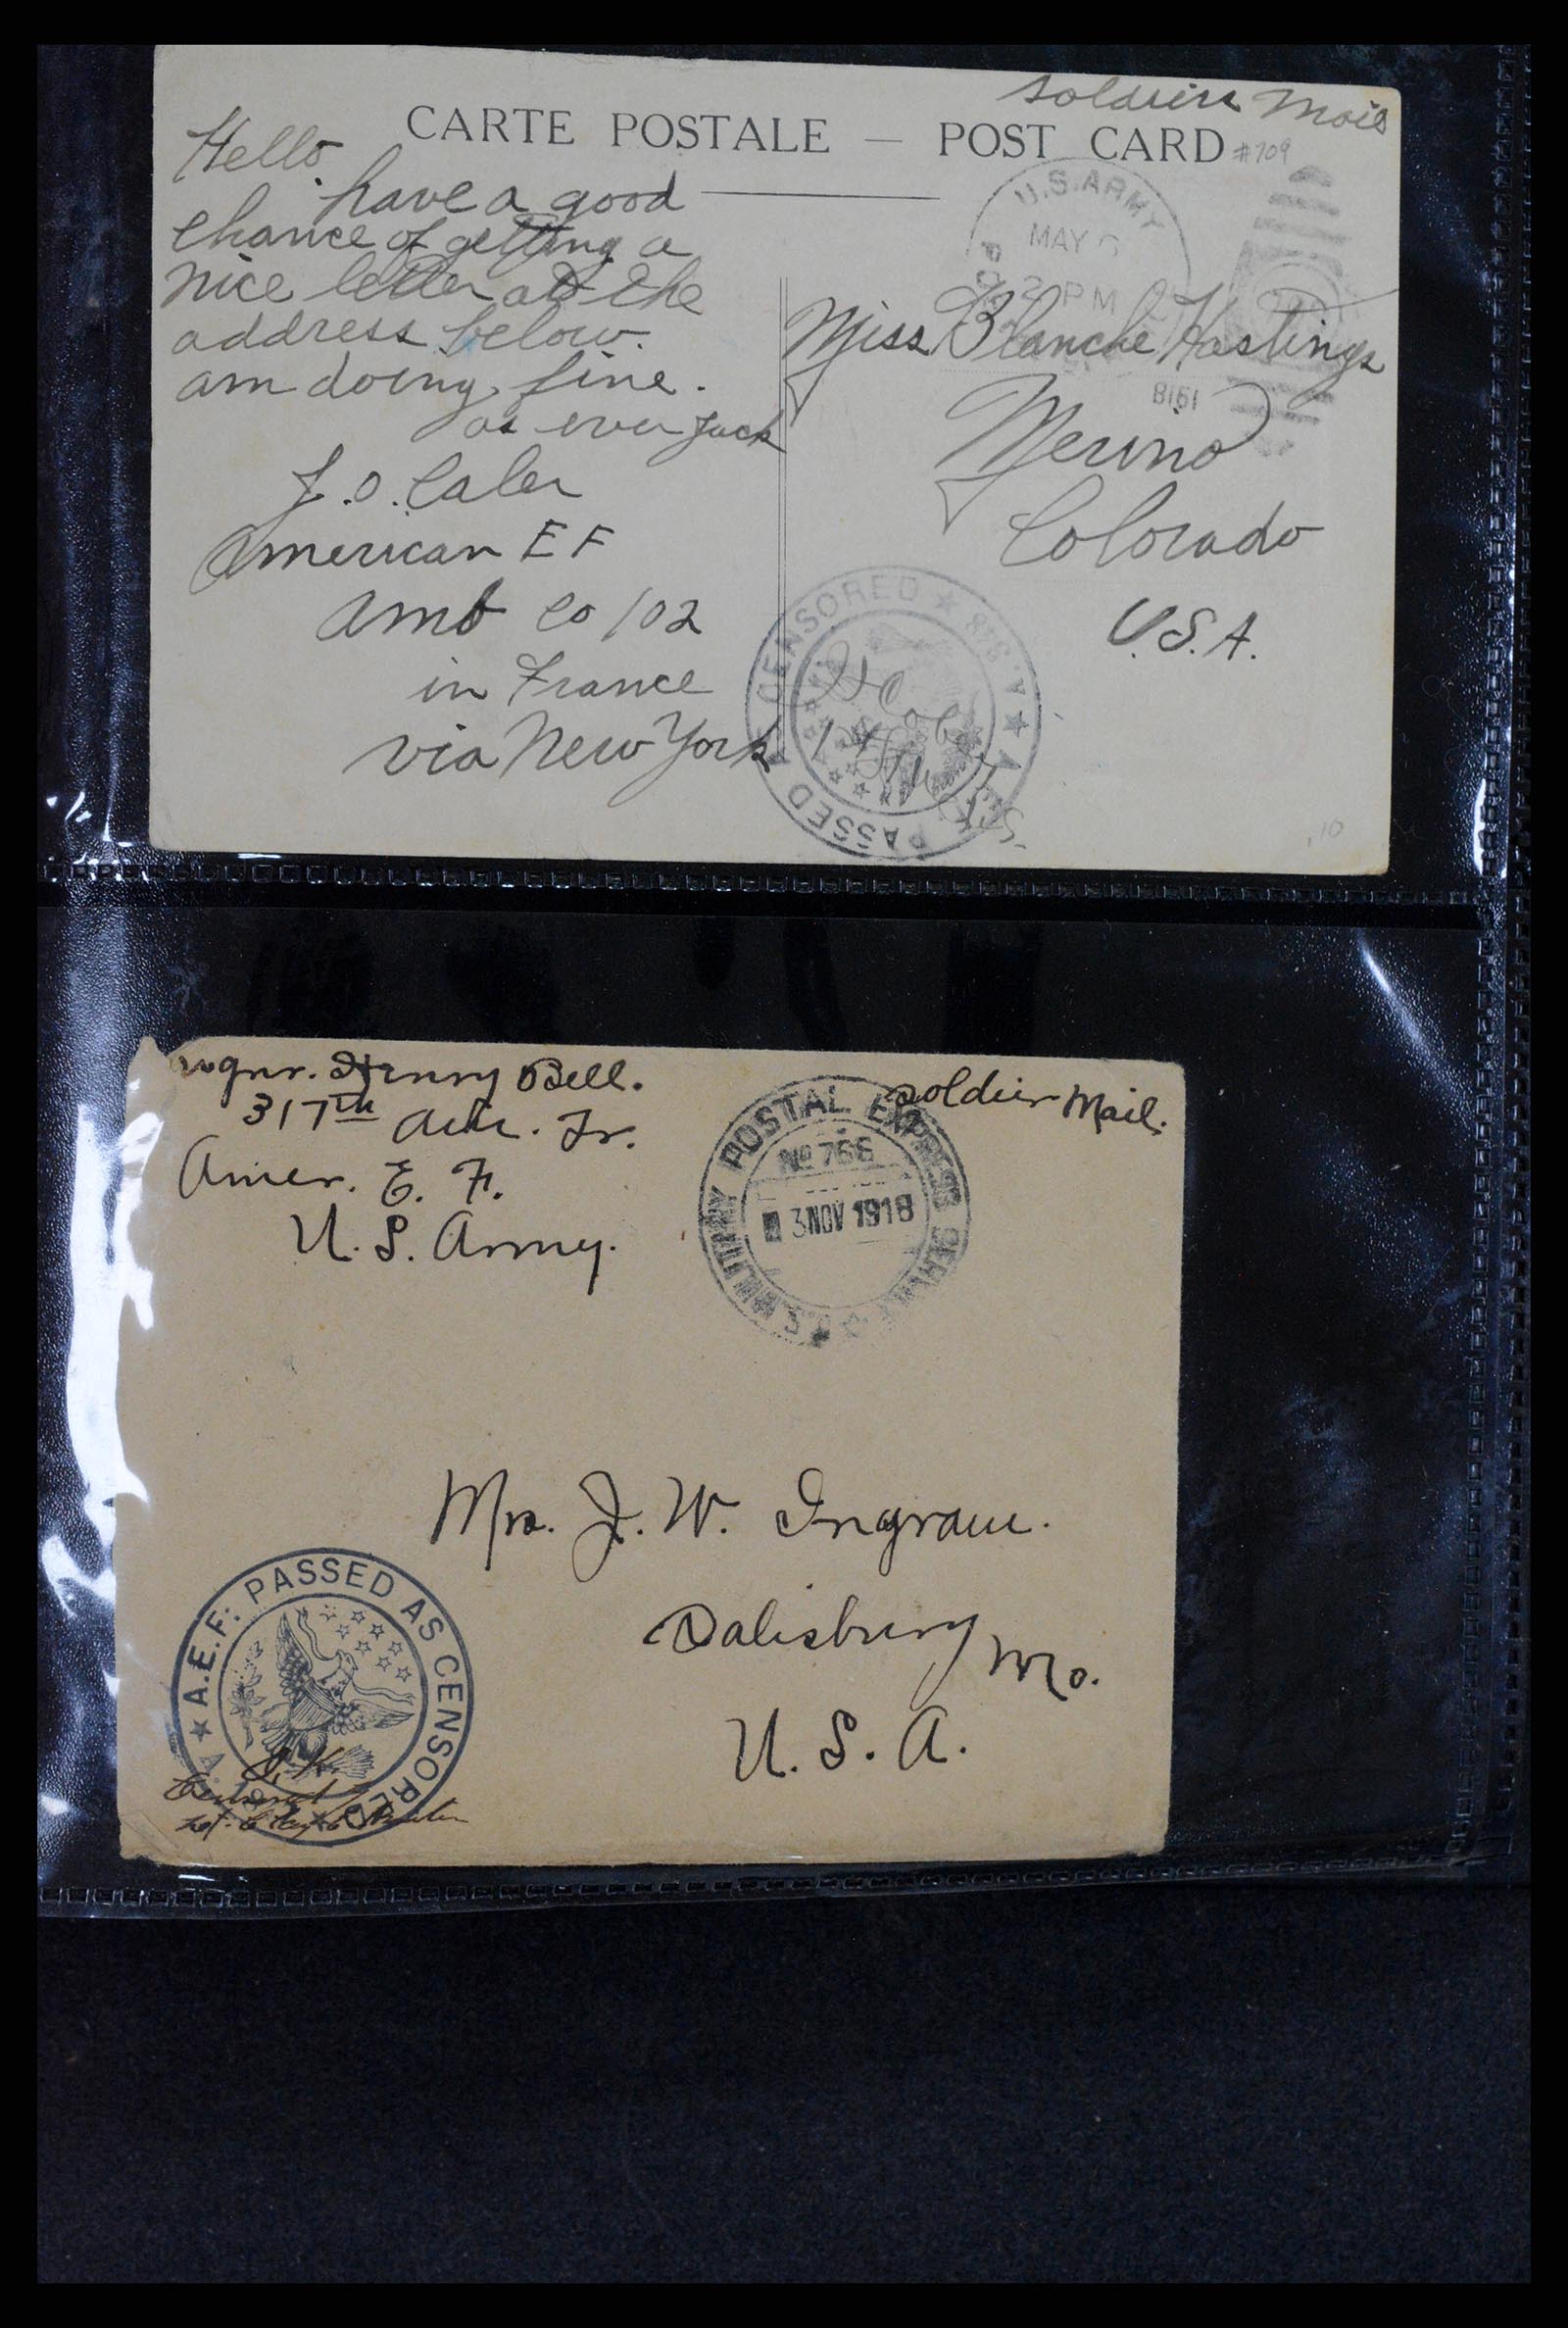 Soldiers Mail
CARTE POSTALE — POST CARD
#709
Hello.
have a good
chance of getting a
nice letter at the
address below.
am doing fine.
as ever Jack
J. O. Caler
American E F
Amb Co 102
in France
via New York
U.S. ARMY
MAY
2 PM
1918
Miss Blanche Hastings
Merino
Colorado
U.S.A.
PASSED AS CENSORED ★ A.948 ★
.10
Wgnr. Henry Bell.
317th Am. Tr.
Amer. E. F.
U. S. Army.
Soldier Mail.
U.S. MILITARY POSTAL EXPRESS SERVICE
No 766
3 NOV 1918
Mrs. J. W. Ingram.
Salisbury Mo.
U. S. A.
★ A.E.F. PASSED AS CENSORED